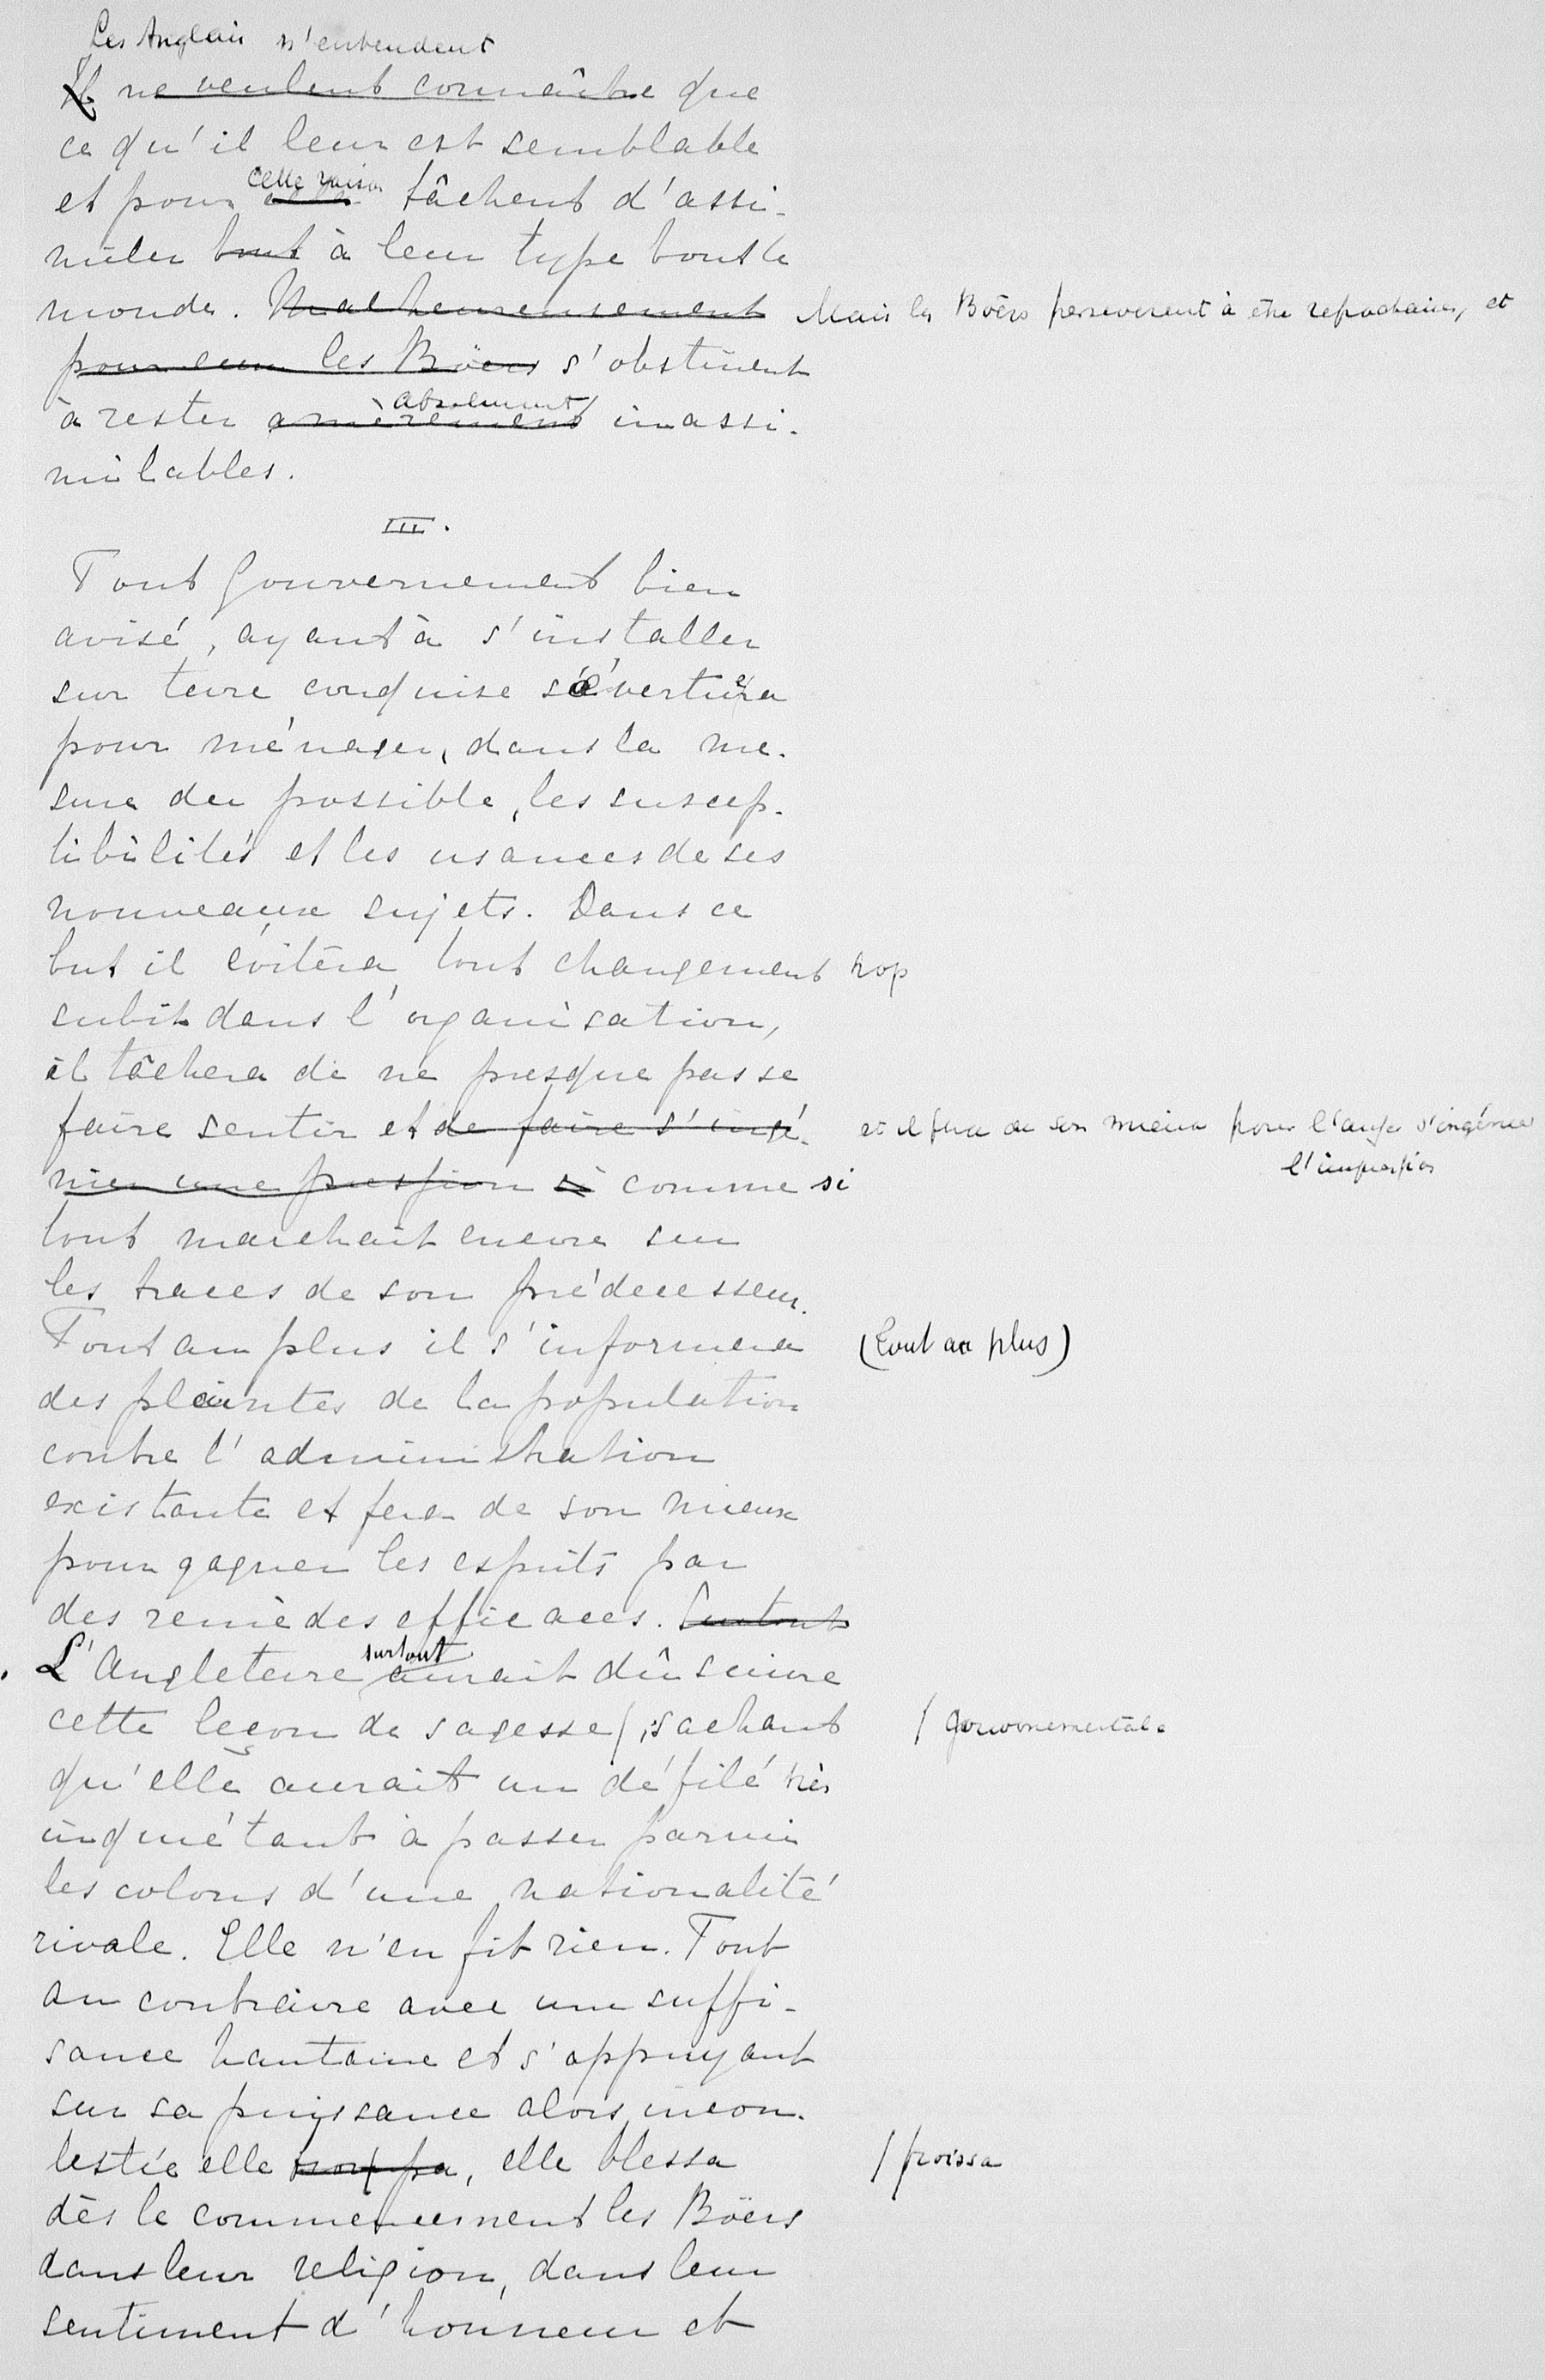 Les Anglais n'entendent
Ils ne veulent connaître que
ce qu'il leur est semblable
cette raison
et pour cela tâchent d'assi-
miler tout à leur type tout le
monde. Malheureusement Mais les Boërs persévèrent à être refractaires, et
pour eux les Boërs s'obstinent
absolument
à rester amèrement inassi-
milables.
III.
Tout Gouvernement bien
avisé, ayant à s'installer
sur terre conquise s'évertuera
pour ménager, dans la me-
sure du possible, les suscep-
tibilités et les usances de ses
nouveaux sujets. Dans ce
but il évitera tout changement trop
subit dans l'organisation,
il tâchera de ne presque pas se
faire sentir et de faire s'ingé- et il fera de son mieux pour s'ingénier
l'impression
nier une pression si comme si
tout marchait encore sur
les traces de son prédécesseur.
Tout au plus il s'informera (Tout au plus)
des plaintes de la population
contre l'administration
existante et fera de son mieux
pour gagner les esprits par
des remèdes efficaces. Surtout
surtout
L'Angleterre aurait dû suivre
cette leçon de sagesse /, sachant / gouvernementale
qu'elle aurait un défilé très
inquiétant à passer parmi
les colons d'une nationalité
rivale. Elle n'en fit rien. Tout
au contraire avec une suffi-
sance hautaine et s'appuyant
sur sa puissance alors incon-
testée elle , elle blessa / froissa
dès le commencement les Boërs
dans leur religion, dans leur
sentiment d'honneur et